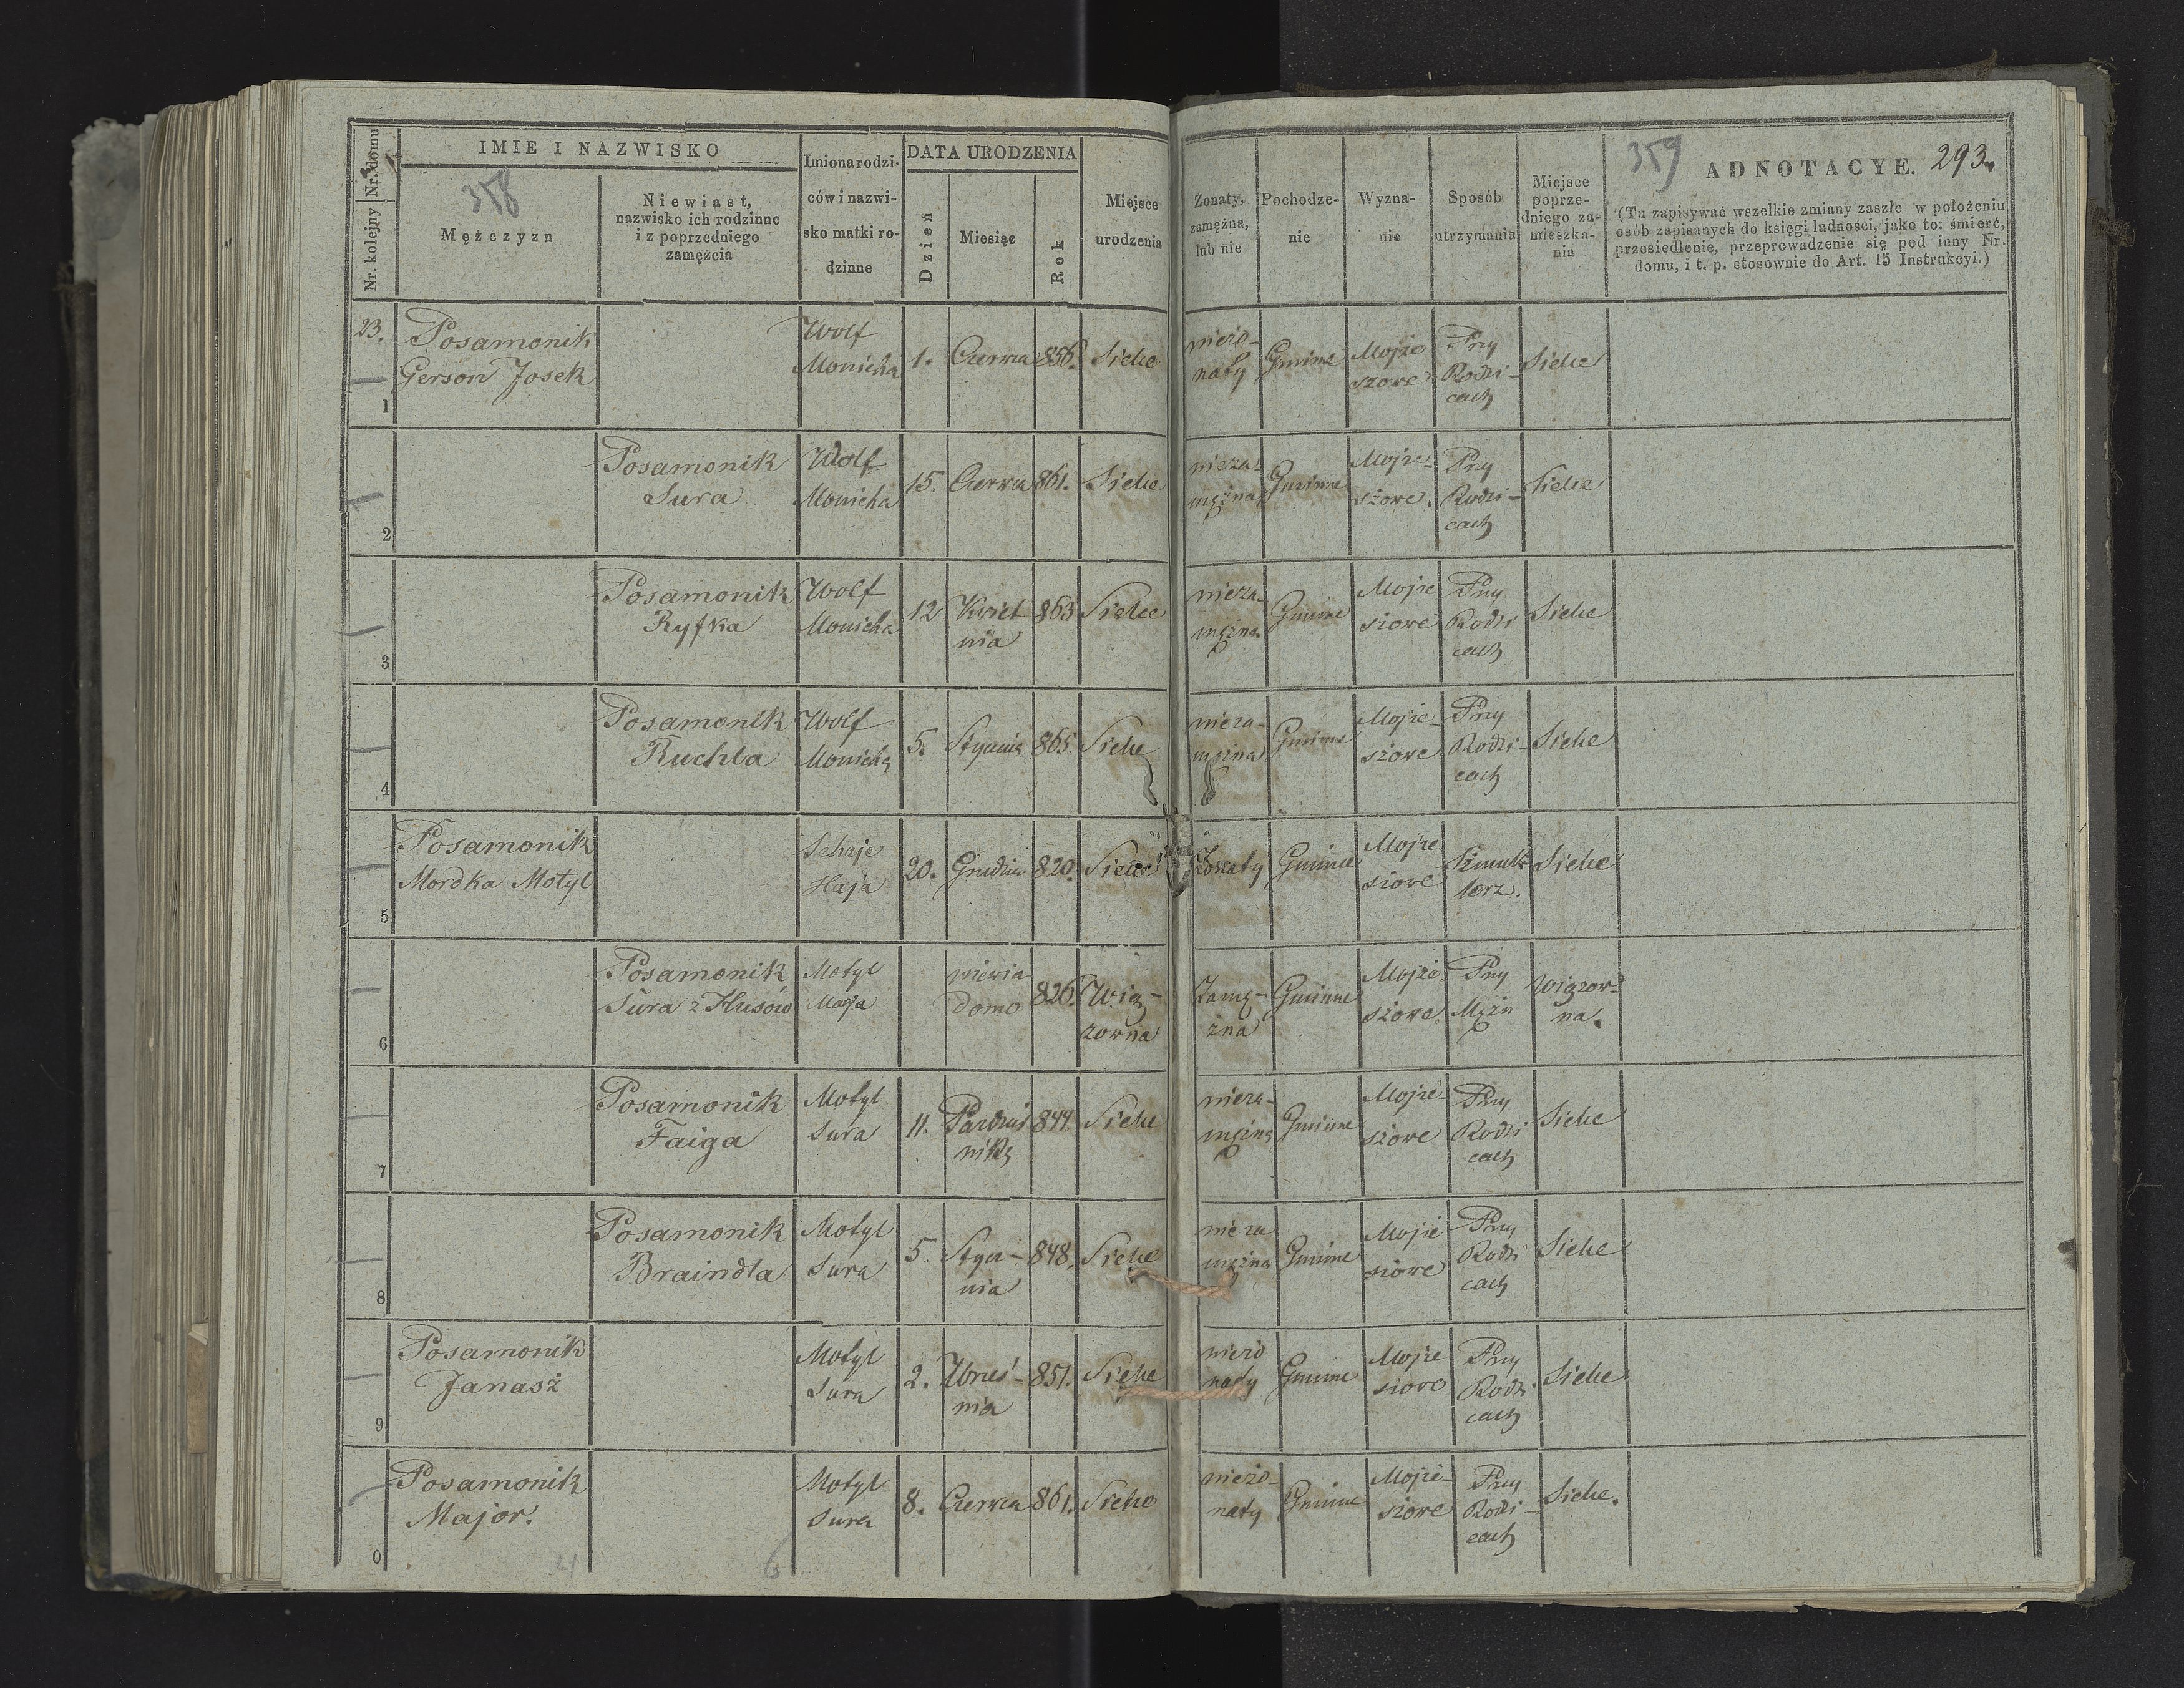 Nr. domu
Nr. kolejny
IMIE I NAZWISKO
358
Mężczyzn
Niewiast,
nazwisko ich rodzinne
i z poprzedniego
zamężcia
Imiona rodzi-
ców i nazwi-
sko matki ro-
dzinne
DATA URODZENIA
Dzień
Miesiąc
Rok
Miejsce
urodzenia
Żonaty,
zamężna,
lub nie
Pochodze-
nie
Wyzna-
nie
Sposób
utrzymania
Miejsce
poprze-
dniego za-
mieszka-
nia
359
ADNOTACYE. 293.
(Tu zapisywać wszelkie zmiany zaszłe w położeniu
osób zapisanych do księgi ludności, jako to: śmierć,
przesiedlenie, przeprowadzenie się pod inny Nr.
domu, i t. p. stosownie do Art. 15 Instrukcyi.)
23.
1
Posamonik
Gerson Josek
Wolf
Monicha
1.
Czerwca
856.
Sielce
nieżo-
naty
Gminne
Mojże
szowe
Przy
Rodzi-
cach
Sielce
2
Posamonik
Sura
Wolf
Monicha
15.
Czerwca
861.
Sielce
nieza-
mężna
Gminne
Mojże-
szowe
Przy
Rodzi-
cach
Sielce
3
Posamonik
Ryfka
Wolf
Monicha
12
Kwiet
nia
863
Sielce
nieza-
mężna
Gminne
Mojże
szowe
Przy
Rodzi
cach
Sielce
4
Posamonik
Ruchla
Wolf
Monicha
5.
Stycznia
865.
Sielce
nieza-
mężna
Gminne
Mojże-
szowe
Przy
Rodzi-
cach
Sielce
5
Posamonik
Mordka Motyl
Schaje
Haja
20.
Grudnia
820.
Sielce
Żonaty
Gminne
Mojże
szowe
Szmuk
lerz.
Sielce
6
Posamonik
Sura z Husów
Motyl
niewia
domo
826.
Wią-
zowna
Zamę-
żna
Gminne
Mojże
szowe
Przy
Mężu
Wiązow-
na.
7
Posamonik
Faiga
Motyl
Sura
11.
Paździer
nika
844.
Sielce
nieza-
mężna
Gminne
Mojże-
szowe
Przy
Rodzi
cach
Sielce
8
Posamonik
Braindla
Motyl
Sura
5.
Stycz-
nia
848.
Sielce
nieza
mężna
Gminne
Mojże
szowe
Przy
Rodzi
cach
Sielce
9
Posamonik
Janasz
Motyl
Sura
2.
Wrześ-
nia
851.
Sielce
nieżo
naty
Gminne
Mojże
szowe
Przy
Rodzi
cach
Sielce
0
Posamonik
Major.
Motyl
Sura
8.
Czerwca
861.
Sielce
nieżo-
naty
Gminne
Mojże-
szowe
Przy
Rodzi-
cach
Sielce.
4
6